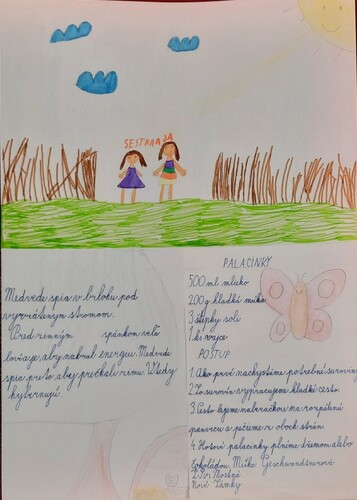 SESTRA A JA
Medvede spia v brlohu pod
vyvráteným stromom.
Pred zimným spánkom veľa
lovia, aby nabral energiu. Medvede
spia preto, aby prečkali zimu. Vtedy
hybernujú
PALACINKY
500 ml mlieko
200g hladká múka
3 štipky soli
1 ks vajce
POSTUP
1. Ako prvé nachystáme potrebné suroviny
2. Zo surovín vypracujeme hladké cesto.
3. Cesto lejeme naberačkou na rozpálenú
panvicu a pečieme z oboch strán
4. Hotové palacinky plníme džemom alebo
čokoládou. Miška Geschwandtnerová
ZŠ Mostná
Nové Zámky